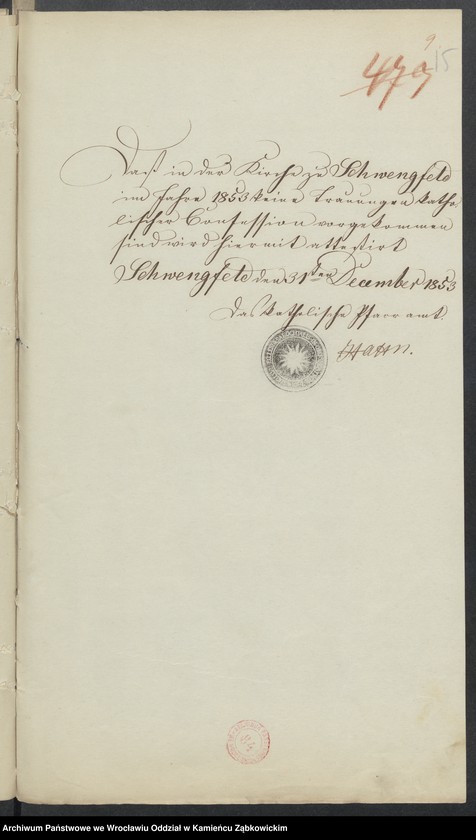 9
15
479
Daß in der Kirche zu Schwengfeld
im Jahre 1853 keine Trauungen katho
lischer Confession vorgekommen
sind wird hiermit attestirt
Schwengfeld den 31ten December 1853
Das katholische Pfarramt.
84
Archiwum Państwowe we Wrocławiu Oddział w Kamieńcu Ząbkowickim